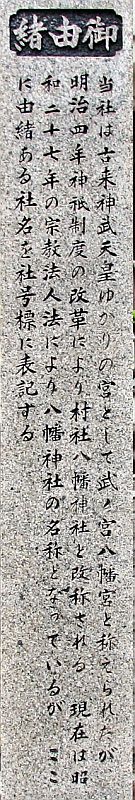 御由緒
当社は古来神武天皇ゆかりの宮として武ノ宮八幡宮と称えられたが
明治四年神祇制度の改革により村社八幡神社と改称される 現在は昭
和二十七年の宗教法人法により八幡神社の名称となっているが ここ
に由緒ある社名を社号標に表記する